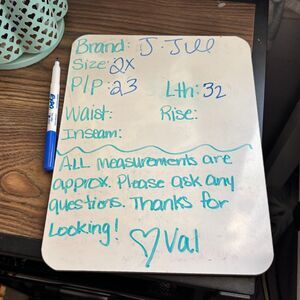 Brand: J. Jill
Size: 2X
P/P: 23 Lth: 32
Waist: Rise:
Inseam:
ALL measurements are
approx. Please ask any
questions. Thanks for
Looking!
♡Val
EXPO